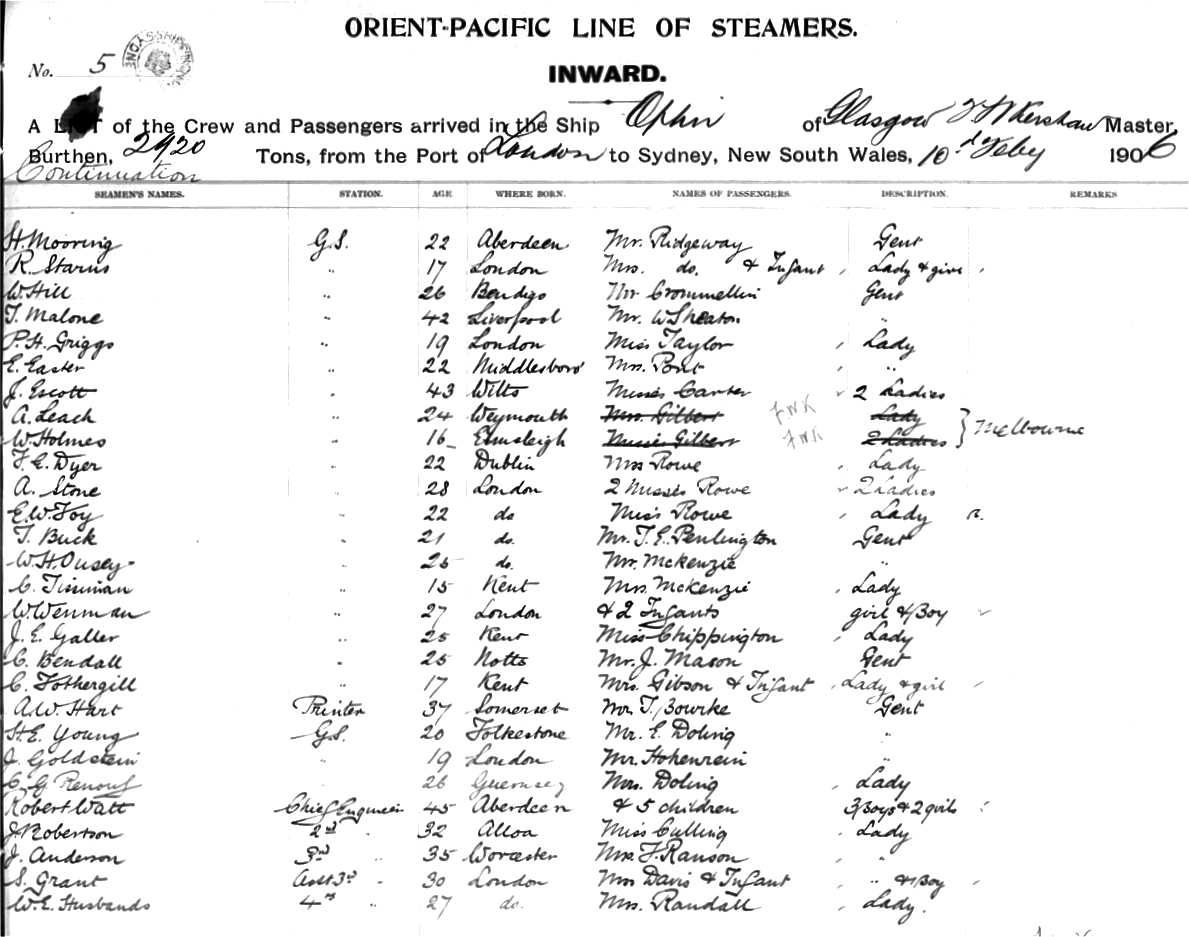 ORIENT-PACIFIC LINE OF STEAMERS.
No. 5
INWARD.
A LIST of the Crew and Passengers arrived in the Ship Ophir of Glasgow J F Kershaw Master,
Burthen, 2920 Tons, from the Port of London to Sydney, New South Wales, 10d Feby 1906
Continuation
SEAMEN'S NAMES. STATION. AGE WHERE BORN. NAMES OF PASSENGERS. DESCRIPTION. REMARKS
H. Mooring G.S. 22 Aberdeen Mr. Ridgeway Gent
R. Starns " 17 London Mrs. do. & Infant Lady & girl
W. Hill " 26 Bendigo Mr Crommellin Gent
T. Malone " 42 Liverpool Mr. W Sheaton "
P. H. Griggs " 19 London Miss Taylor Lady
E. Easter " 22 Middlesboro' Mrs. Pont "
J. Escott " 43 Wilts Misses Carter 2 Ladies
A. Leach " 24 Weymouth Mrs. Gilbert FWK Lady
W. Holmes " 16 Elmsleigh Misses Gilbert FWK 2 Ladies } Melbourne
F. E. Dyer " 22 Dublin Mrs Rowe Lady
A. Stone " 28 London 2 Misses Rowe 2 Ladies
E. W. Foy " 22 do Miss Rowe Lady
T. Buck " 21 do. Mr. T. E. Penlington Gent
W. H. Ousey " 25 do. Mr. McKenzie "
C. Tinman " 15 Kent Mrs McKenzie Lady
W. Wenman " 27 London & 2 Infants girl & Boy
J. E. Galler " 25 Kent Miss Chippington Lady
C. Bendall " 25 Notts Mr. J. Mason Gent
C. Fothergill " 17 Kent Mrs. Gibson & Infant Lady & girl
A. W. Hart Printer 37 Somerset Mr T. Bourke Gent
H. E. Young G.S. 20 Folkestone Mr. E. Doling "
J. Goldstein " 19 London Mr. Hohenrein "
C. G Renouf 26 Guernsey Mrs. Doling Lady
Robert Watt Chief Engineer 45 Aberdeen & 5 children 3 Boys & 2 girls
J. Robertson 2nd " 32 Alloa Miss Culling Lady
J. Anderson 3rd " 35 Worcester Mrs. F. Ranson "
S. Grant Asst 3rd " 30 London Mrs Davis & Infant " & Boy
W. E. Husbands 4th " 27 do. Mrs. Randall Lady.